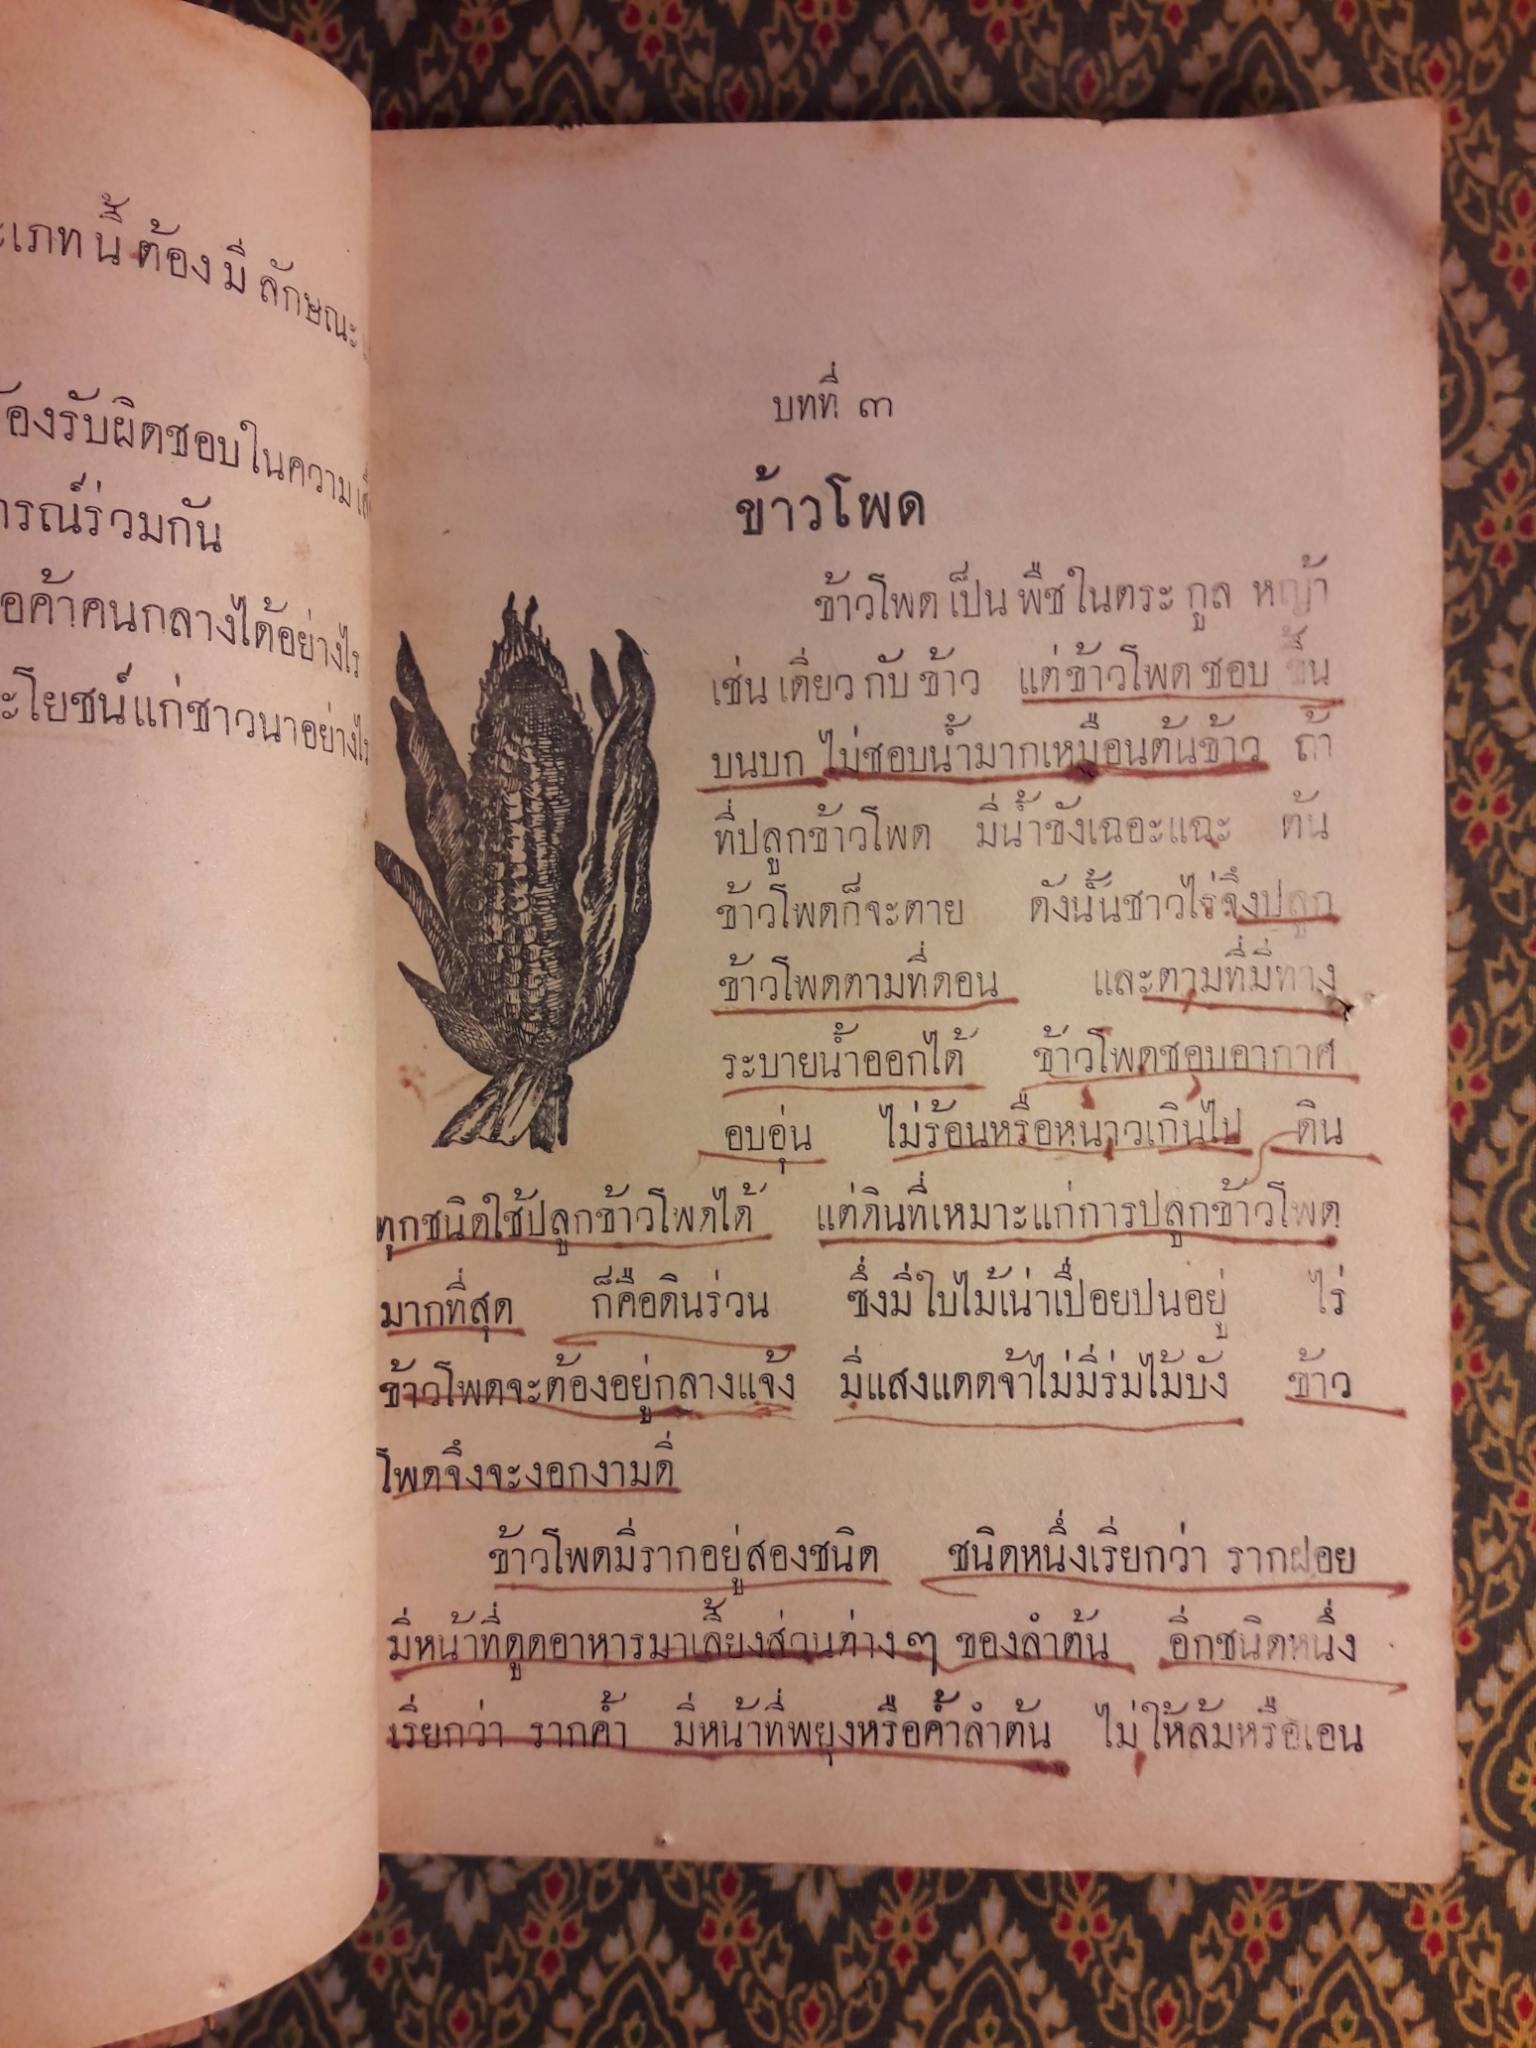 ะเภทนี้ต้องมีลักษณะ
้องรับผิดชอบในความ
ารณ์ร่วมกัน
อค้าคนกลางได้อย่างไร
ะโยชน์แก่ชาวนาอย่างไร
บทที่ ๓
ข้าวโพด
ข้าวโพดเป็นพืชในตระกูลหญ้า
เช่นเดียวกับข้าว แต่ข้าวโพดชอบขึ้น
บนบก ไม่ชอบน้ำมากเหมือนต้นข้าว ถ้า
ที่ปลูกข้าวโพด มีน้ำขังเฉอะแฉะ ต้น
ข้าวโพดก็จะตาย ดังนั้นชาวไร่จึงปลูก
ข้าวโพดตามที่ดอน และตามที่มีทาง
ระบายน้ำออกได้ ข้าวโพดชอบอากาศ
อบอุ่น ไม่ร้อนหรือหนาวเกินไป ดิน
ทุกชนิดใช้ปลูกข้าวโพดได้ แต่ดินที่เหมาะแก่การปลูกข้าวโพด
มากที่สุด ก็คือดินร่วน ซึ่งมีใบไม้เน่าเปื่อยปนอยู่ ไร่
ข้าวโพดจะต้องอยู่กลางแจ้ง มีแสงแดดจ้าไม่มีร่มไม้บัง ข้าว
โพดจึงจะงอกงามดี
ข้าวโพดมีรากอยู่สองชนิด ชนิดหนึ่งเรียกว่า รากฝอย
มีหน้าที่ดูดอาหารมาเลี้ยงส่วนต่าง ๆ ของลำต้น อีกชนิดหนึ่ง
เรียกว่า รากค้ำ มีหน้าที่พยุงหรือค้ำลำต้น ไม่ให้ล้มหรือเอน